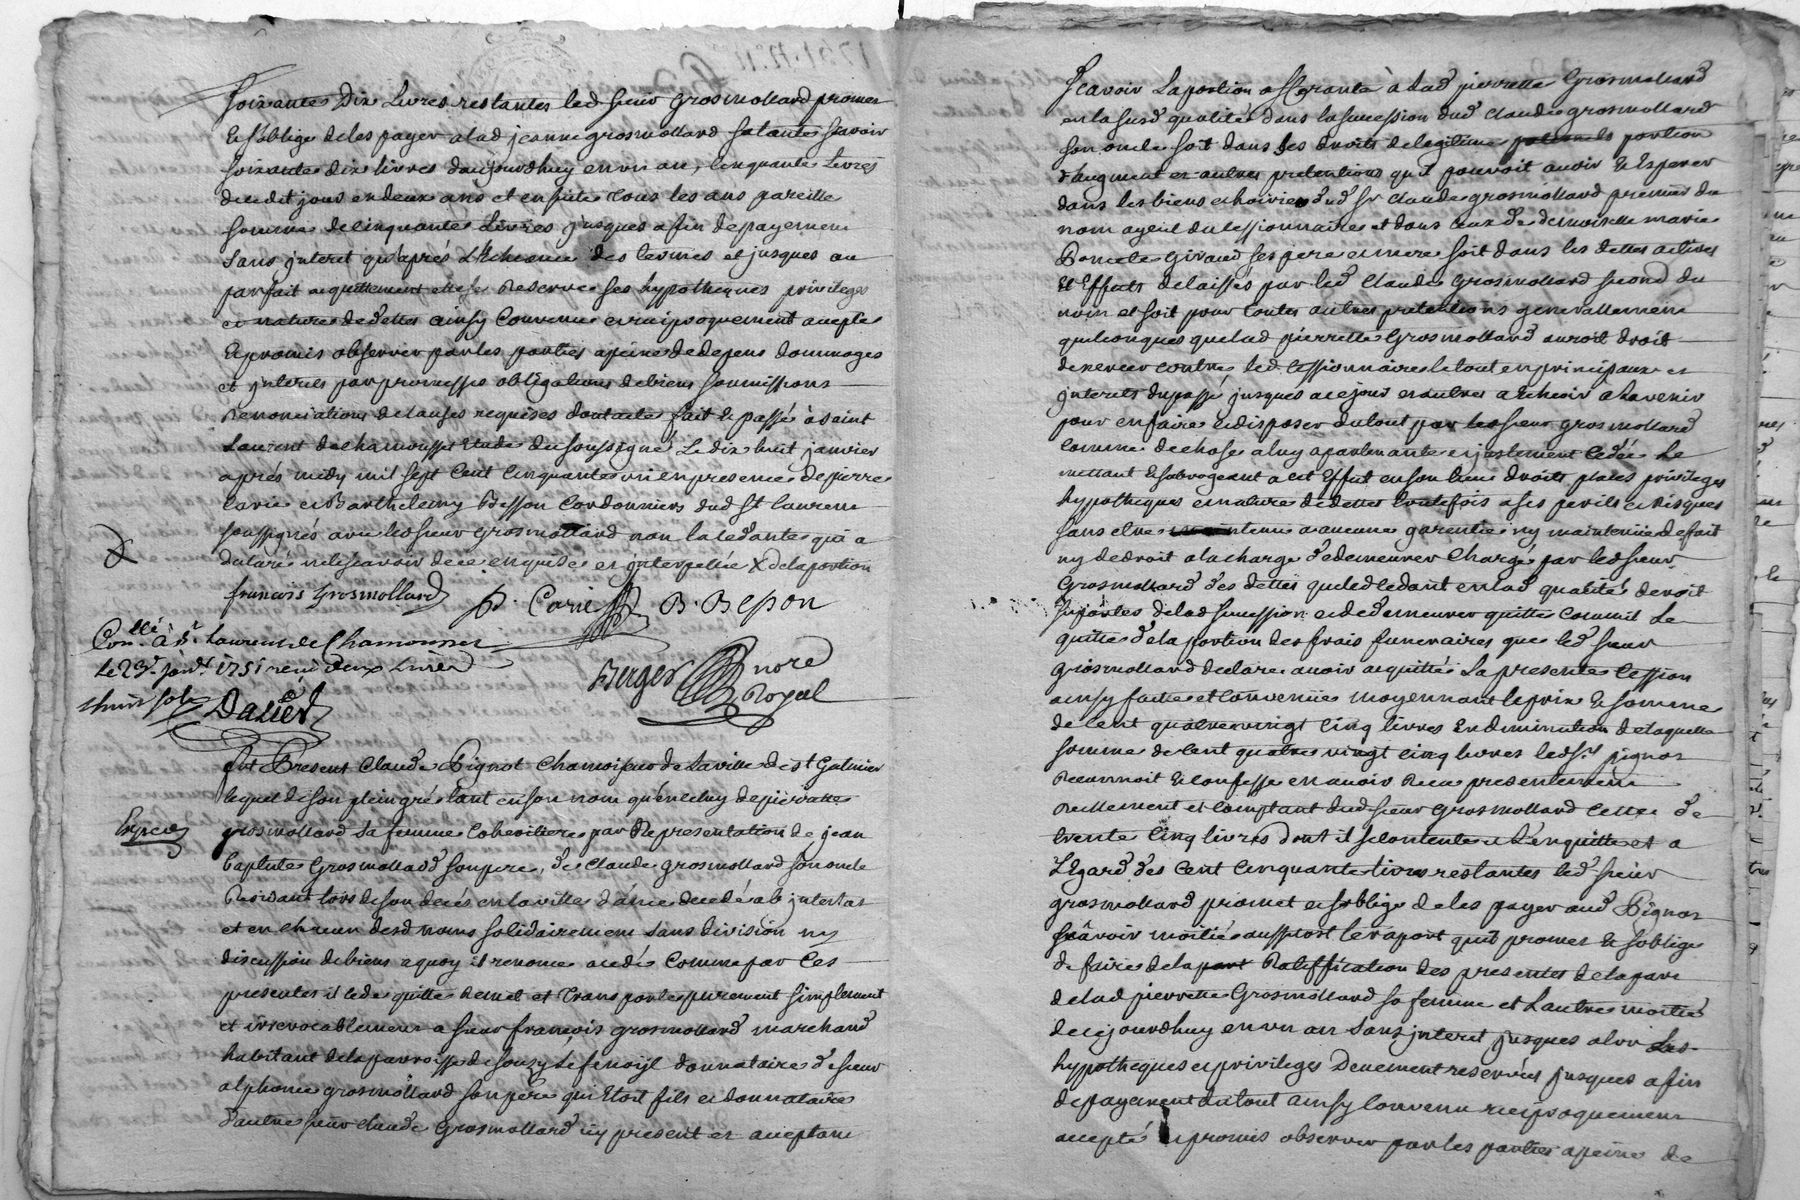 Soixante Dix Livres restantes led sieur Grosmollard promet
Et soblige de les payer a lad jeanne grosmollard sa tante scavoir
soixante dix livres daujourdhuy en un an, cinquante Livres
dudit jour en deux ans et ensuite tous les ans pareille
somme de cinquante Livres jusques a fin de payement
sans interet qu'aprés L'Echeance des termes et jusques au
parfait acquittement elle se Reserve ses hypotheques privileges
et nature de dettes ainsy Convenu et reciproquement accepté
Et promis observer par les parties a peine de depens dommages
et interets par promesses obligations de biens soumissions
Renonciations de clauses requises dont acte fait Et passé à saint
Laurent de chamousset Etude du soussigné Le dix huit janvier
aprés midy mil sept Cent Cinquante un en presence de pierre
Carie et Barthelemy Besson Cordonniers dud St Laurent
soussignés avec led sieur Grosmollard non la cedante qui a
declaré ne le scavoir de ce enquise et interpellée X de la portion
françois Grosmollard P. Carie B. Beson
Con.llé à St Laurent de Chamousset
Le 23e janv. 1751 reçu deux Livres
Berger no.re Royal
Dalier
Fut Present Claude Pignot Chamoiseur de la ville de St Galmier
lequel de son plein gré tant en son nom qu'en celuy de pierrette
Expedié
grosmollard sa femme Coheritiere par Representation de jean
baptiste Grosmollard son pere, de Claude grosmollard son oncle
Residant lors de son decés en la ville decedé ab intestat
et en chacun desd noms solidairement sans division ny
discussion de biens a quoy il renonce a cedé Comme par Ces
presentes il cede quitte Remet et transporte purement simplement
et irrevocablement a sieur françois grosmollard marchand
habitant de la parroisse de souzy donnataire de sieur
alphonce grosmollard son pere qui Etoit fils et donnataire
d'autre sieur claude Grosmollard icy present et acceptant
Scavoir La portion afferante à lad pierrette Grosmollard
en la susd qualité dans la succession dud Claude grosmollard
son oncle soit dans ses droits de legitime portion
d'augment et autres pretentions qu'il pouvoit avoir Et Esperer
dans les biens et hoirie dud sr claude grosmollard premier du
nom ayeul du cessionnaire et dans ceux de demoiselle marie
Poncete Giraud ses pere et mere soit dans les dettes actives
Et Effets delaissés par led Claude Grosmollard second du
nom et soit pour toutes autres pretentions generallement
quelconques que lad pierrette Grosmollard auroit droit
dexercer contre led Cessionnaire le tout en principaux et
interets du passé jusques a ce jour et autres a Echeoir a Lavenir
pour en faire et disposer du tout par led sieur grosmollard
Comme de chose a luy apartenante et justement Cedée Le
mettant Et subrogeant a cet Effet en son lieu droits places privileges
hypotheques et nature de dettes toutefois a ses perils et Risques
sans etre tenu a aucune garentie ny maintenüe de fait
ny de droit a la charge de demeurer Chargé par led sieur
Grosmollard des dettes que led Cedant en lad qualité devoit
suporter de lad succession et de demeurer quitte Comm'il Le
quitte de la portion des frais funeraires que led sieur
Grosmollard declare avoir acquitté La presente Cession
ainsy faite et convenüe moyennant le prix Et somme
de Cent quatre vingt Cinq livres En diminution de laquelle
somme de Cent quatre vingt Cinq livres led sr pignot
Reconnoit Et Confesse en avoir Recu presentement
Reellement et Comptant dud sieur Grosmollard Celle de
trente Cinq livres dont il se contente et L'enquitte et a
L'Egard des Cent Cinquante livres restantes led sieur
grosmollard promet et soblige de les payer aud Pignot
scavoir moitié aussitost le raport qu'il promet Et soblige
de faire de la part Ratiffication des presentes de la part
de lad pierrette Grosmollard sa femme et L'autre moitié
de cejourdhuy en un an sans interet jusques alors Les
hypotheques et privileges Deuement reservés jusques a fin
de payement du tout ainsy Convenu reciproquement
accepté et promis observer par les parties a peine de